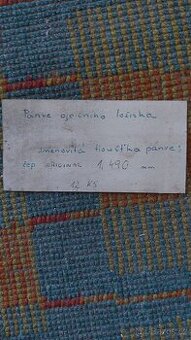 Pánve ojničního ložiska
jmenovitá tloušťka pánve:
čep ojniční 1,490 mm
12 KS